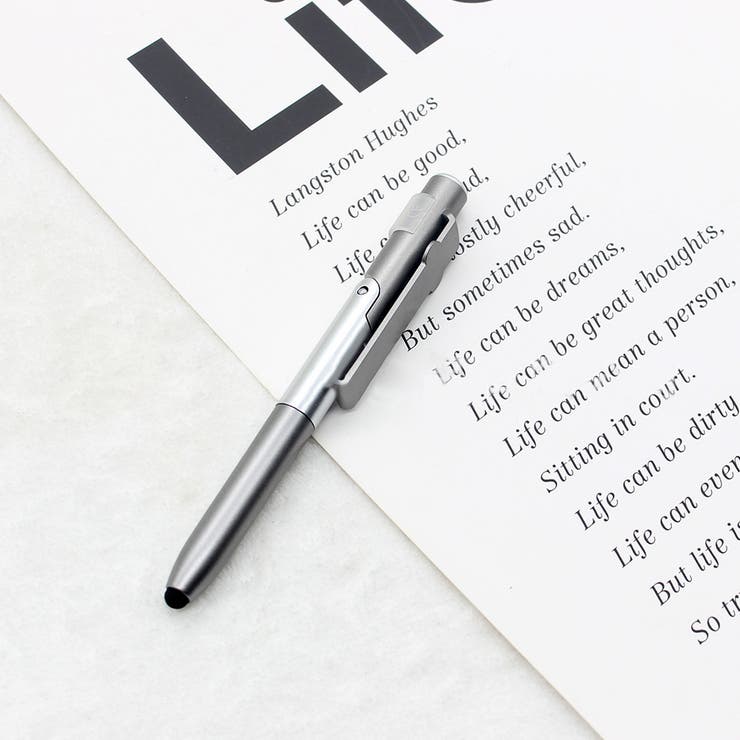 Life
Langston Hughes
Life can be good,
Life
But sometimes mostly cheerful,
But sometimes sad.
Life can be dreams,
Life can be great thoughts,
Life can mean a person,
Sitting in court.
Life can be dirty
Life can even
But life is
So